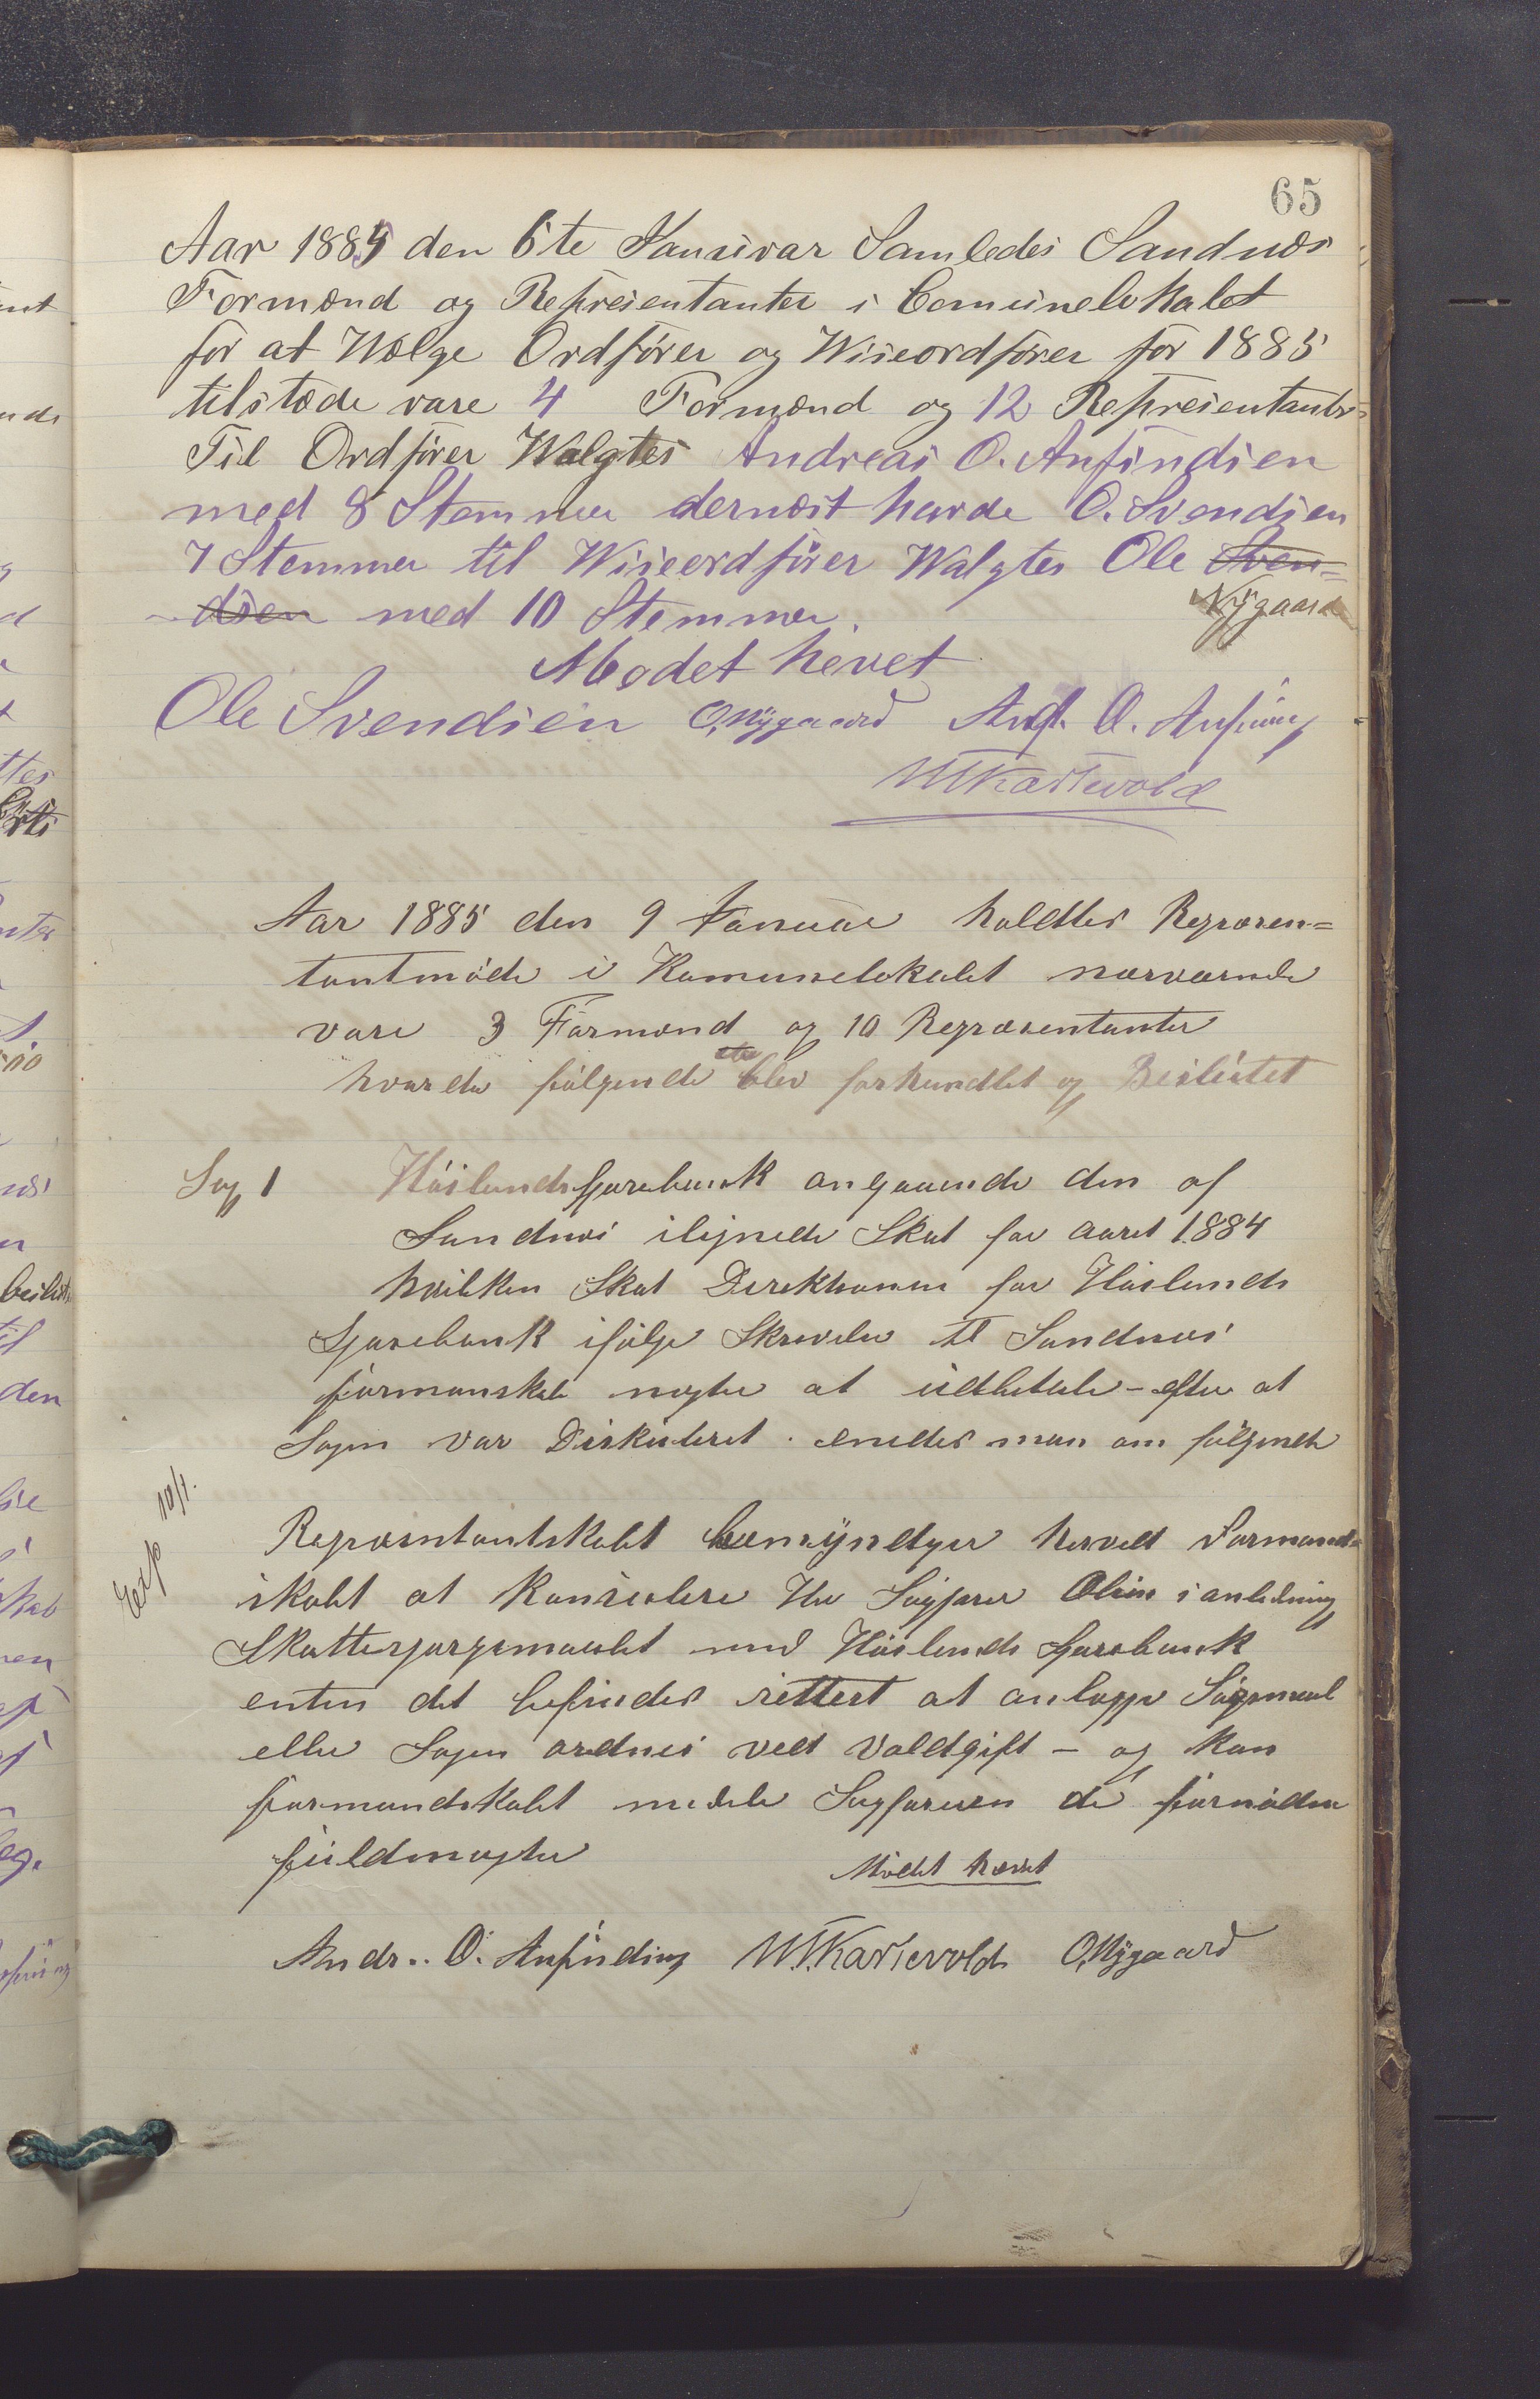 65
Aar 1885 den 6te Januvar Samledes Sandnæs
Formænd og Representanter i Comunelokalet
for at Wælge Ordfører og Wiseordfører for 1885
tilstæde vare 4 Formænd og 12 Representanter
Til Ordfører Walgtes Andreas O. Anfindsen
med 8 Stemmer dernæst havde O. Svendsen
7 Stemmer til Wiseordfører Walgtes Ole Sven=
dsen med 10 Stemmer. Nÿgaard
Mødet hevet
Ole Svendsen O. Nÿgaard And. O. Anfinds
M. Kartevold
Aar 1885 den 9 Januar holdtes Repræsen=
tantmøde i Komunelokalet nærværende
vare 3 Formænd og 10 Repræsentanter
hvorda følgende blev forhandlet og Besluttet
Sag 1 Høilands Sparebank angaaende den af
Sandnæs ilignede Skat for aaret 1884
hvilken Skat Direktionen for Høilands
Sparebank ifølge Skrivelse til Sandnæs
formanskab nægter at udbetale - efter at
Sagen var Diskuteret enedes man om følgende
Exp 10/1.
Repræsentantskabet bemÿndiger herved Formand=
skabet at Konsulere Hr Sagfører Olsen i anledning
Skattespørgsmaalet med Høilands Sparebank
enten det befindes rettest at anlægge Søgsmaal
eller Sagen ordnes ved Voldgift - og kan
formandskabet meddele Sagføreren de fornødne
fuldmagter
Mødet hævet
Andr. O. Anfindsen M. Kartevold O. Nÿgaard